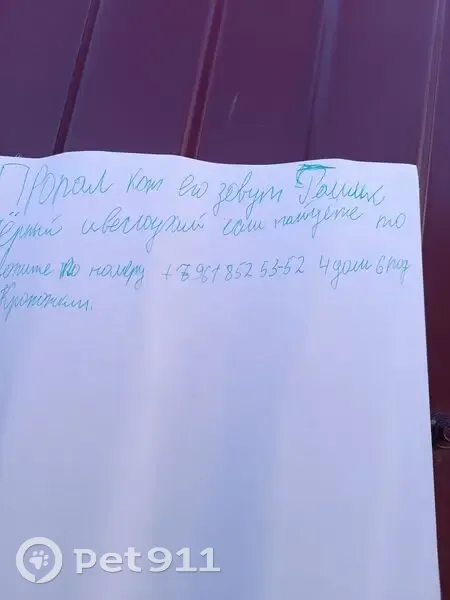 Пропал кот его зовут Ромик
чёрный и вислоухий если найдёте то
воните по номеру +7 961 852 53-52 4 дом 6 под
Кропоткин.
pet911